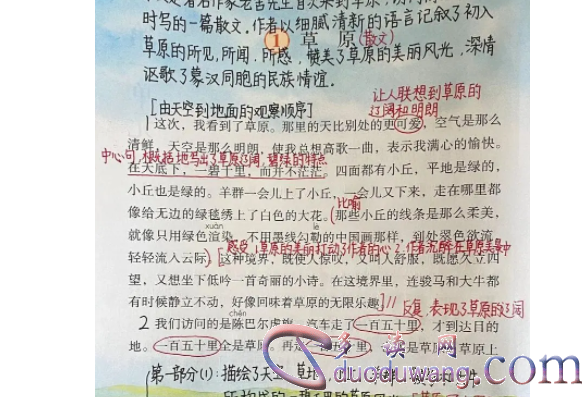 时写的一篇散文.作者以细腻清新的语言记叙了初入
1 草原(散文)
草原的所见,所闻,所感,赞美了草原的美丽风光,深情
讴歌了蒙汉同胞的民族情谊.
[由天空到地面的观察顺序]
让人联想到草原的
辽阔和明朗
1 这次,我看到了草原。那里的天比别处的更可爱,空气是那么
清鲜,天空是那么明朗,使我总想高歌一曲,表示我满心的愉快。
中心句,概括地写出了草原辽阔,碧绿的特点
在天底下,一碧千里,而并不茫茫。四面都有小丘,平地是绿的,
小丘也是绿的。羊群一会儿上了小丘,一会儿又下来,走在哪里都
比喻
像给无边的绿毯绣上了白色的大花。那些小丘的线条是那么柔美,
xuàn lè
就像只用绿色渲染,不用墨线勾勒的中国画那样,到处翠色欲流,
感受,1.草原的美丽打动了作者的心 2.作者沉醉在草原美景中
轻轻流入云际。[这种境界,既使人惊叹,又叫人舒服,既愿久立四
望,又想坐下低吟一首奇丽的小诗。在这境界里,连骏马和大牛都
有时候静立不动,好像回味着草原的无限乐趣。]//
反复,表现了草原的辽阔
chén
2 我们访问的是陈巴尔虎旗。汽车走了一百五十里,才到达目的
地。一百五十里全是草原。再走一百五十里,也是草原。草原上
多读网
duoduwang.com
第一部分(1):描绘了天空,草地,